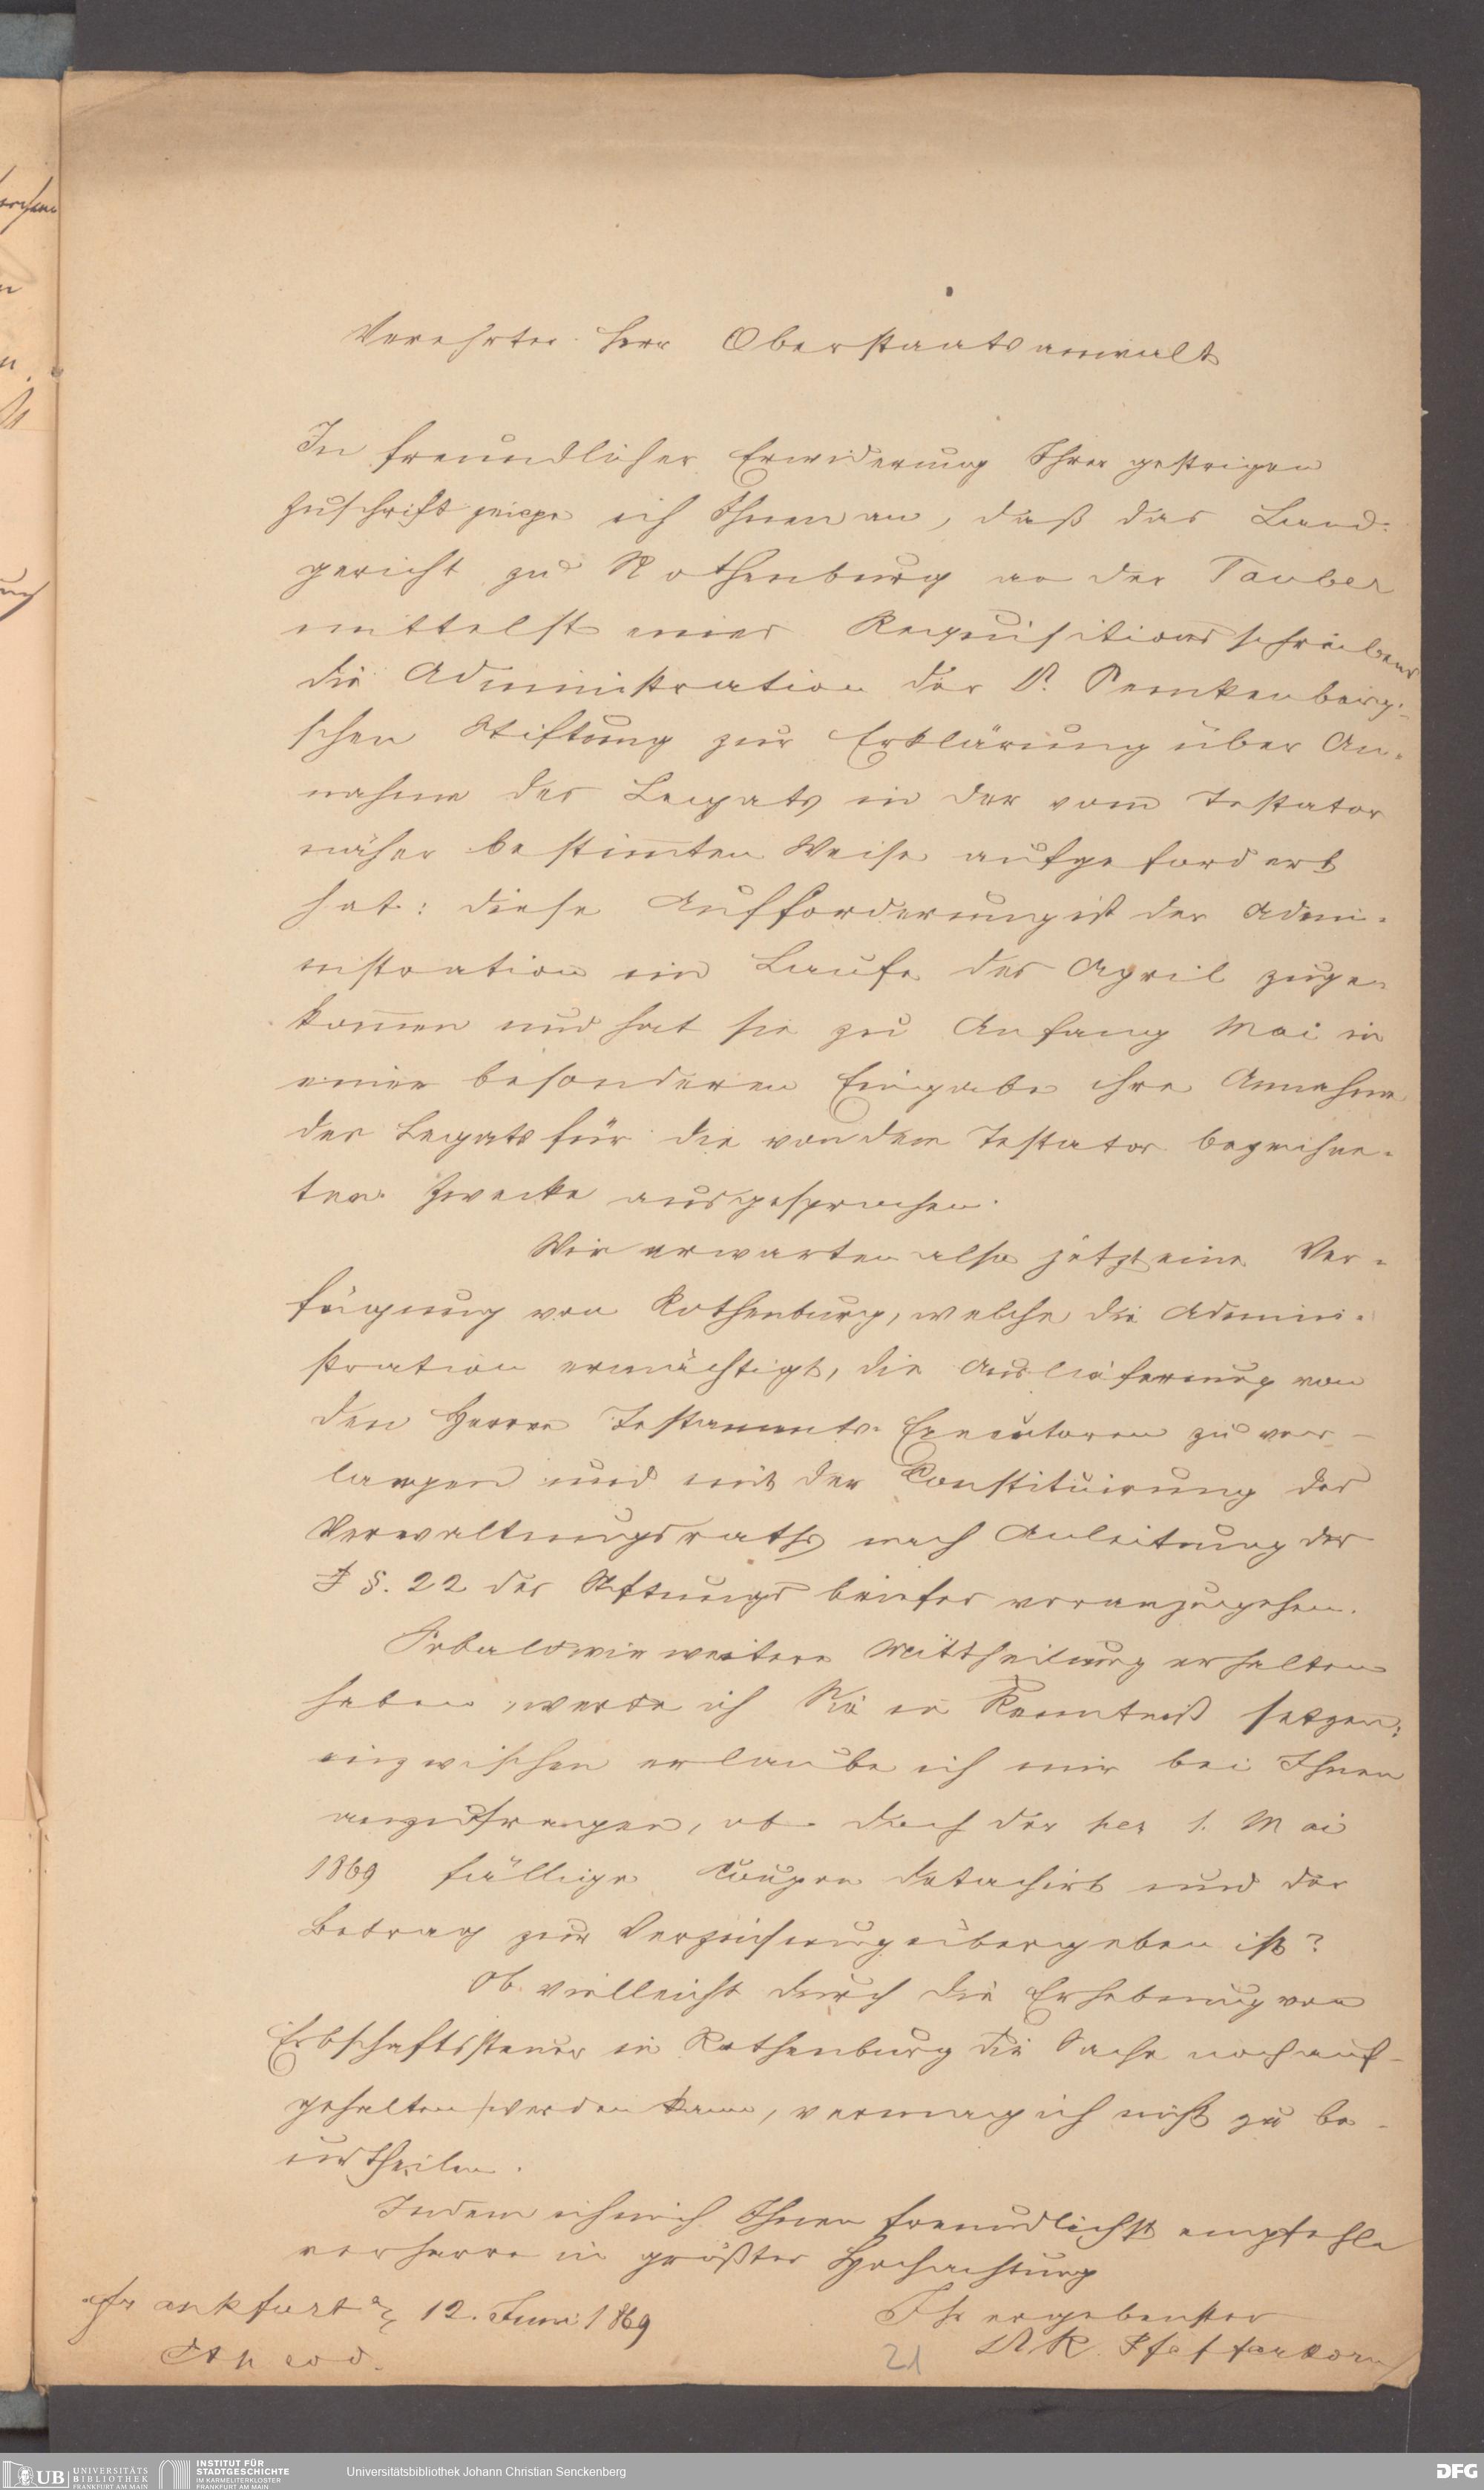 Verehrter Herr Oberstaatsanwalt
In freundlicher Erwiderung Ihrer gestrigen
Zuschrift zeige ich Ihnen an, daß das Land-
gericht zu Rothenburg an der Tauber
mittelst eines Requisitionsschreibens
die Administration der Dr. Senkenberg-
schen Stiftung zur Erklärung über An-
nahme des Legats in der vom Testator
näher bestimmten Weise aufgefordert
hat: diese Aufforderung ist der Admi-
nistration im Laufe des April zuge-
kommen und hat sie zu Anfang Mai in
einer besonderen Eingabe ihre Annahme
des Legats für die von dem Testator bezeichne-
ten Zwecke ausgesprochen.
Wir erwarten also jetzt eine Ver-
fügung von Rothenburg, welche die Admini-
stration ermächtigt, die Auslieferung von
den Herren Testaments-Executoren zu ver-
langen und mit der Constituirung des
Verwaltungsraths nach Anleitung des
§. 22 des Stiftungsbriefes voranzugehen.
Sobald wir weitere Mittheilung erhalten
haben, werde ich Sie in Kenntniß setzen;
inzwischen erlaube ich mir bei Ihnen
anzufragen, ob doch der per 1. Mai
1869 fällige Coupon detachirt und der
Betrag zur Verzinsung übergeben ist?
Ob vielleicht durch die Erhebung von
Erbschaftssteuer in Rothenburg die Sache noch auf-
gehalten werden kann, vermag ich nicht zu be-
urtheilen.
Indem ich mich Ihnen freundlichst empfehle
verharre in größter Hochachtung
Frankfurt a/M 12. Juni 1869
Ihr ergebenster
Pfefferkorn
21
UB UNIVERSITÄTS
BIBLIOTHEK
FRANKFURT AM MAIN
INSTITUT FÜR
STADTGESCHICHTE
IM KARMELITERKLOSTER
FRANKFURT AM MAIN
Universitätsbibliothek Johann Christian Senckenberg
DFG